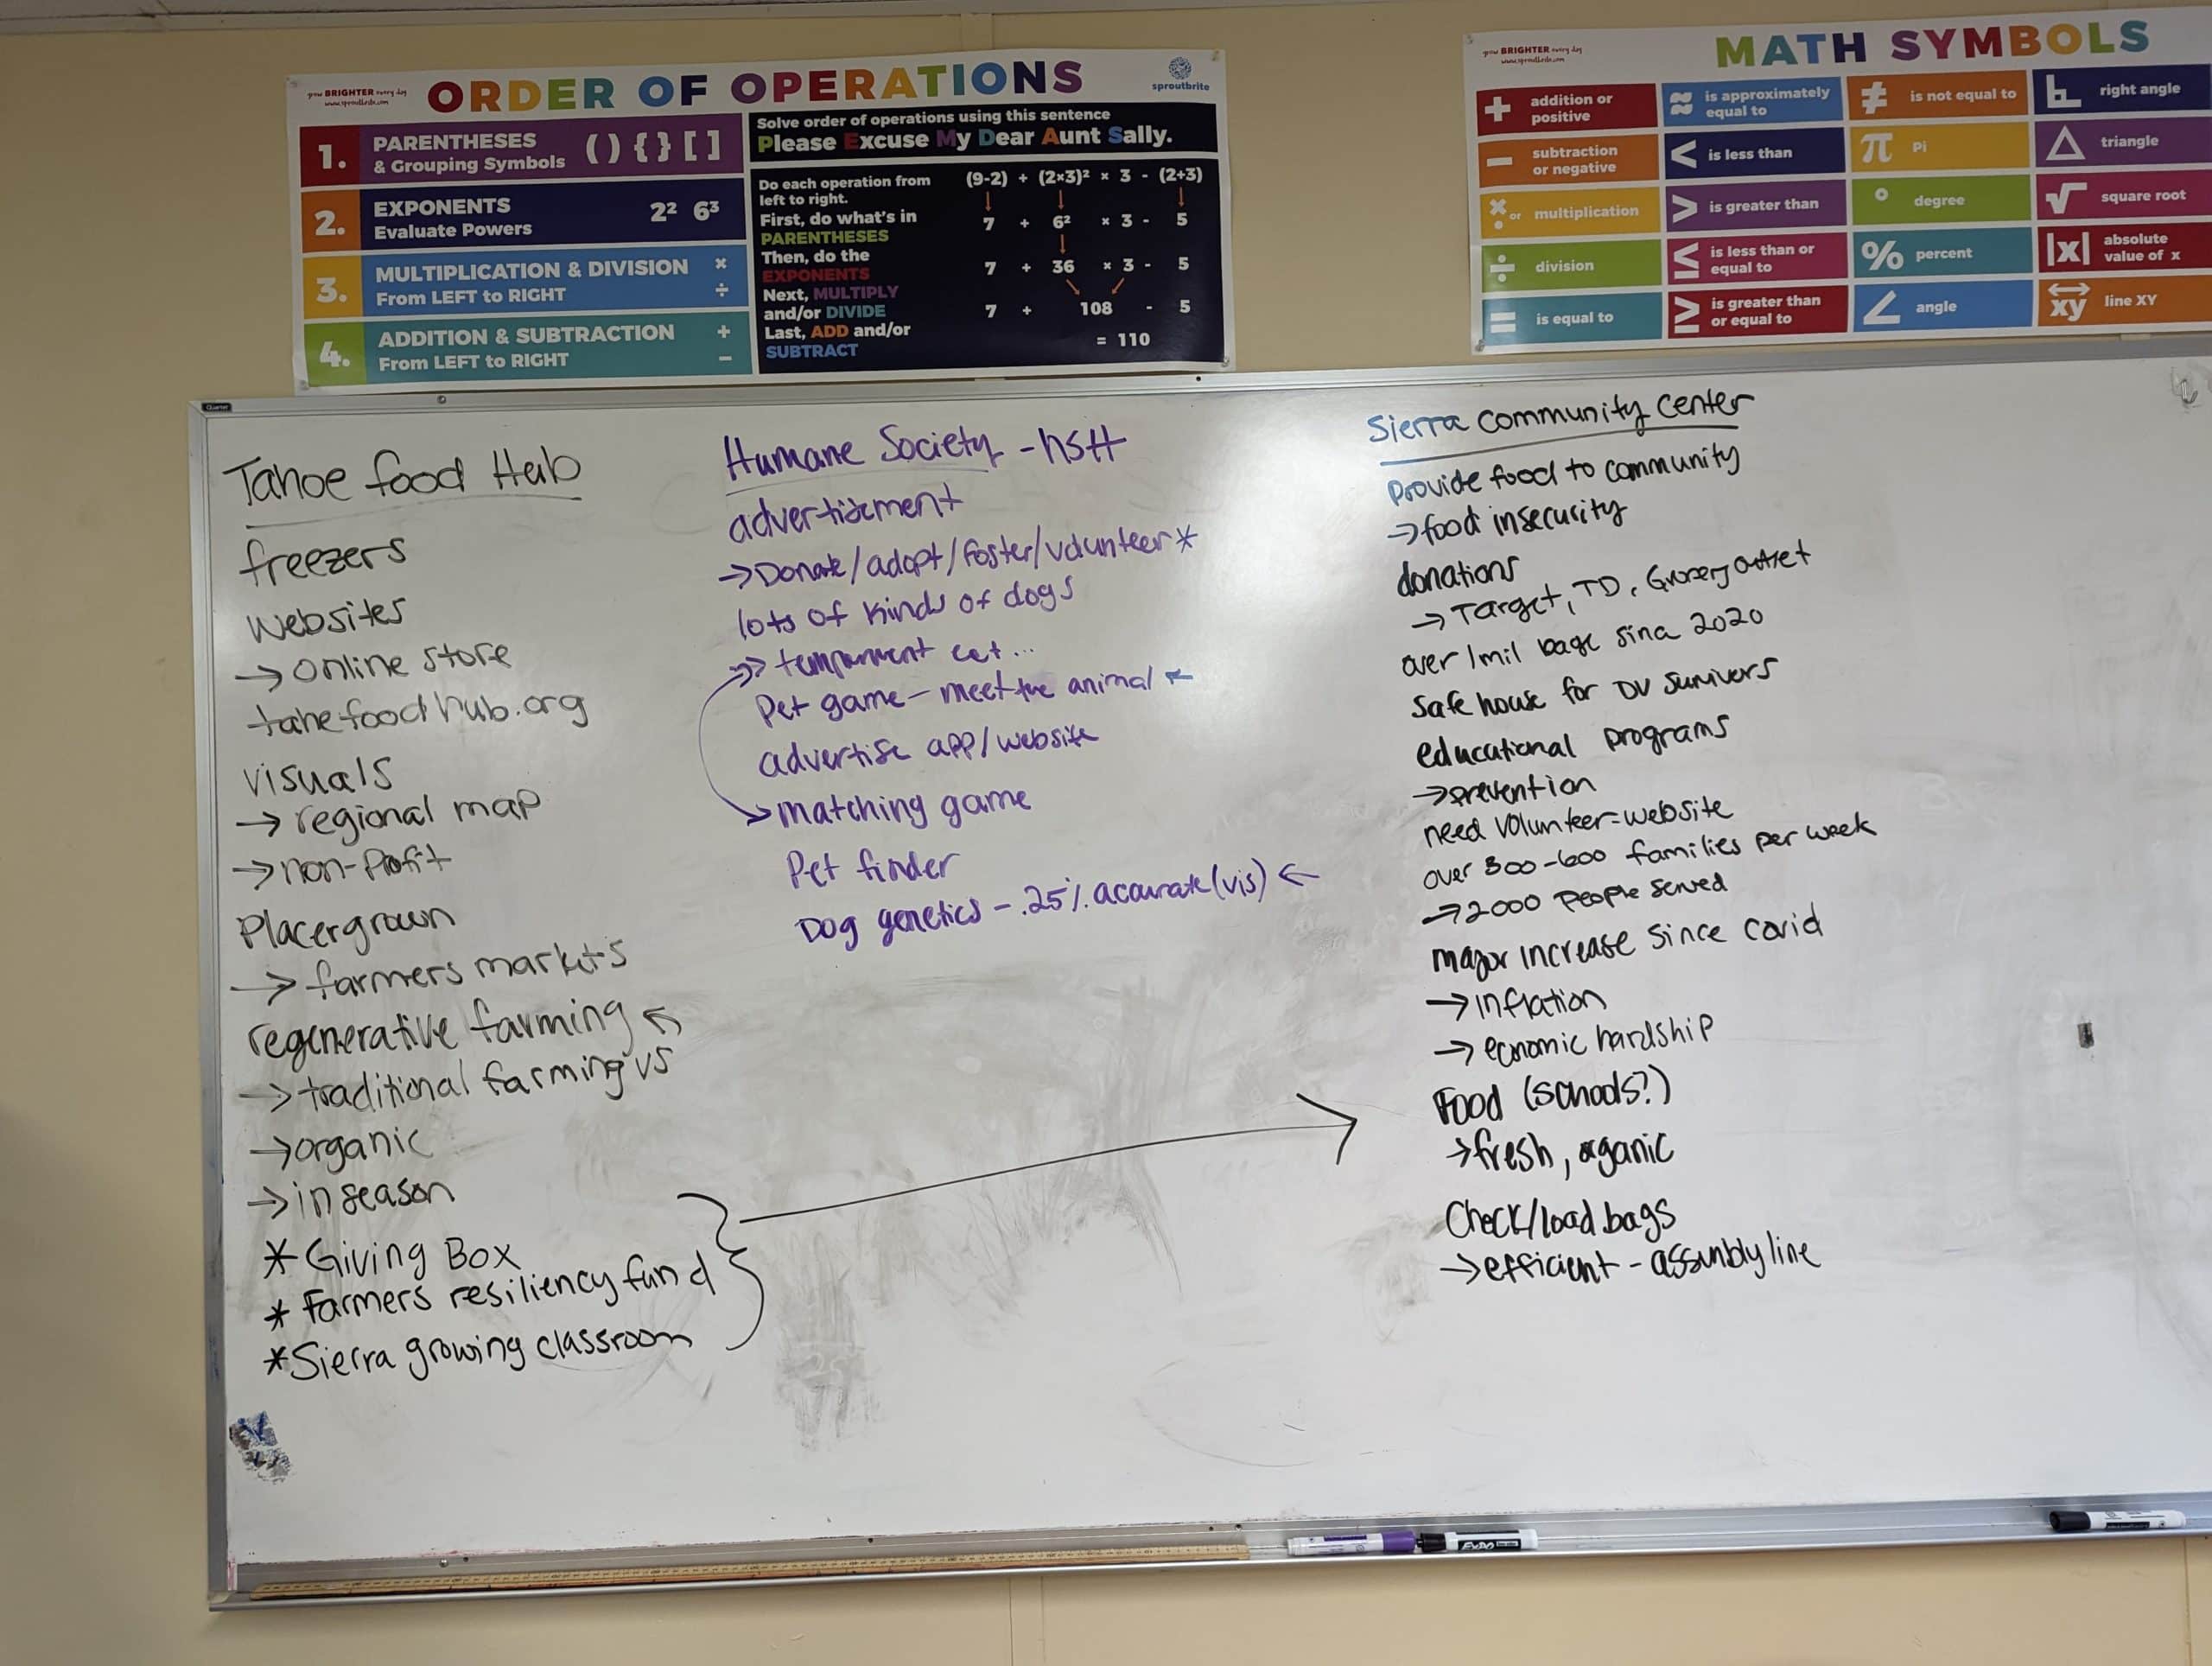 grow BRIGHTER every day
www.sproutbrite.com
ORDER OF OPERATIONS
sproutbrite
1. PARENTHESES ( ) { } [ ]
& Grouping Symbols
2. EXPONENTS 2² 6³
Evaluate Powers
3. MULTIPLICATION & DIVISION × ÷
From LEFT to RIGHT
4. ADDITION & SUBTRACTION + −
From LEFT to RIGHT
Solve order of operations using this sentence
Please Excuse My Dear Aunt Sally.
Do each operation from
left to right.
First, do what's in
PARENTHESES
Then, do the
EXPONENTS
Next, MULTIPLY
and/or DIVIDE
Last, ADD and/or
SUBTRACT
(9-2) + (2×3)² × 3 - (2+3)
7 + 6² × 3 - 5
7 + 36 × 3 - 5
7 + 108 - 5
= 110
grow BRIGHTER every day
www.sproutbrite.com
MATH SYMBOLS
+ addition or
positive
≈ is approximately
equal to
≠ is not equal to
right angle
− subtraction
or negative
< is less than
π Pi
△ triangle
× or • multiplication
> is greater than
° degree
√ square root
÷ division
≤ is less than or
equal to
% percent
|x| absolute
value of x
= is equal to
≥ is greater than
or equal to
∠ angle
xy line XY
Quartet
Tahoe food Hub
freezers
websites
→ online store
tahoefoodhub.org
visuals
→ regional map
→ non-Profit
Placergrown
→ farmers markets
regenerative farming ←
→ traditional farming vs
→ organic
→ in season
* Giving Box
* Farmers resiliency fund
* Sierra growing classroom
Humane Society - hstt
advertisement
→ Donate/adopt/foster/volunteer *
lots of kinds of dogs
→ temparment ect...
Pet game - meet the animal ←
advertise app/website
→ matching game
Pet finder
Dog genetics - .25% acaurate (vis) ←
Sierra community center
Provide food to community
→ food insecurity
donations
→ Target, TD, Grocery outlet
over 1mil bags since 2020
Safe house for DV survivers
educational programs
→ prevention
need volunteer = website
over 300-600 families per week
→ 2000 People served
major increase since covid
→ inflation
→ economic hardship
Food (schools?)
→ fresh, organic
Check/load bags
→ efficient - assembly line
EXPO